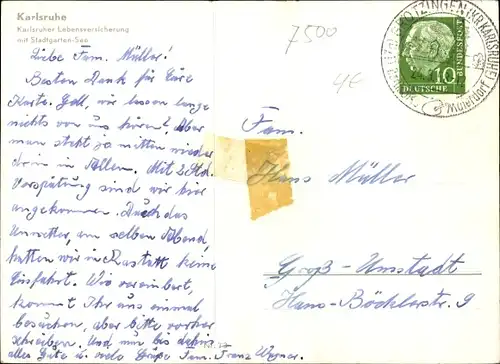 Karlsruhe
Karlsruher Lebensversicherung
mit Stadtgarten-See
Liebe Fam. Müller!
Besten Dank für Eure
Karte. Gell, wir lassen lange
nichts von uns hören! Aber
man steht ja mitten wieder
drin in Allem. Mit 2 Std.
Verspätung sind wir hier
angekommen. Durch das
Unwetter, am selben Abend,
hatten wir in Rastatt keine
Einfahrt. Wie vereinbart,
kommt Ihr uns einmal
besuchen, aber bitte vorher
schreiben. Und nun bis dahin
alles Gute u. viele Grüße Fam. Franz Wagner.
7500
4€
GRÖTZINGEN (KR KARLSRUHE)
DEUTSCHE
BUNDESPOST
10
Fam.
Hans Müller
Groß-Umstadt
Hans-Böcklerstr. 9